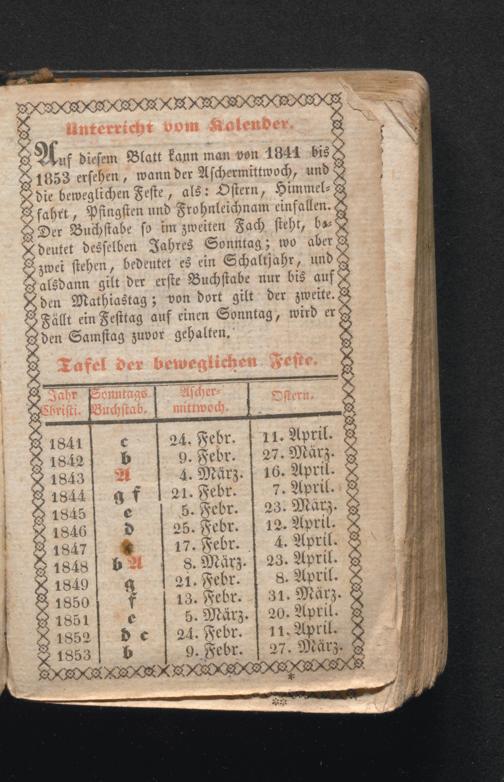 Unterricht vom Kalender.
Auf diesem Blatt kann man von 1841 bis
1853 ersehen, wann der Aschermittwoch, und
die beweglichen Feste, als: Ostern, Himmel-
fahrt, Pfingsten und Frohnleichnam einfallen.
Der Buchstabe so im zweiten Fach steht, be-
deutet desselben Jahres Sonntag; wo aber
zwei stehen, bedeutet es ein Schaltjahr, und
alsdann gilt der erste Buchstabe nur bis auf
den Mathiastag; von dort gilt der zweite.
Fällt ein Festtag auf einen Sonntag, wird er
den Samstag zuvor gehalten.
Tafel der beweglichen Feste.
Jahr Sonntags Ascher- Ostern.
Christi. Buchstab. mittwoch.
1841 c 24. Febr. 11. April.
1842 b 9. Febr. 27. März.
1843 A 4. März. 16. April.
1844 g f 21. Febr. 7. April.
1845 e 5. Febr. 23. März.
1846 d 25. Febr. 12. April.
1847 17. Febr. 4. April.
1848 b A 8. März. 23. April.
1849 g 21. Febr. 8. April.
1850 f 13. Febr. 31. März.
1851 e 5. März. 20. April.
1852 d c 24. Febr. 11. April.
1853 b 9. Febr. 27. März.
*